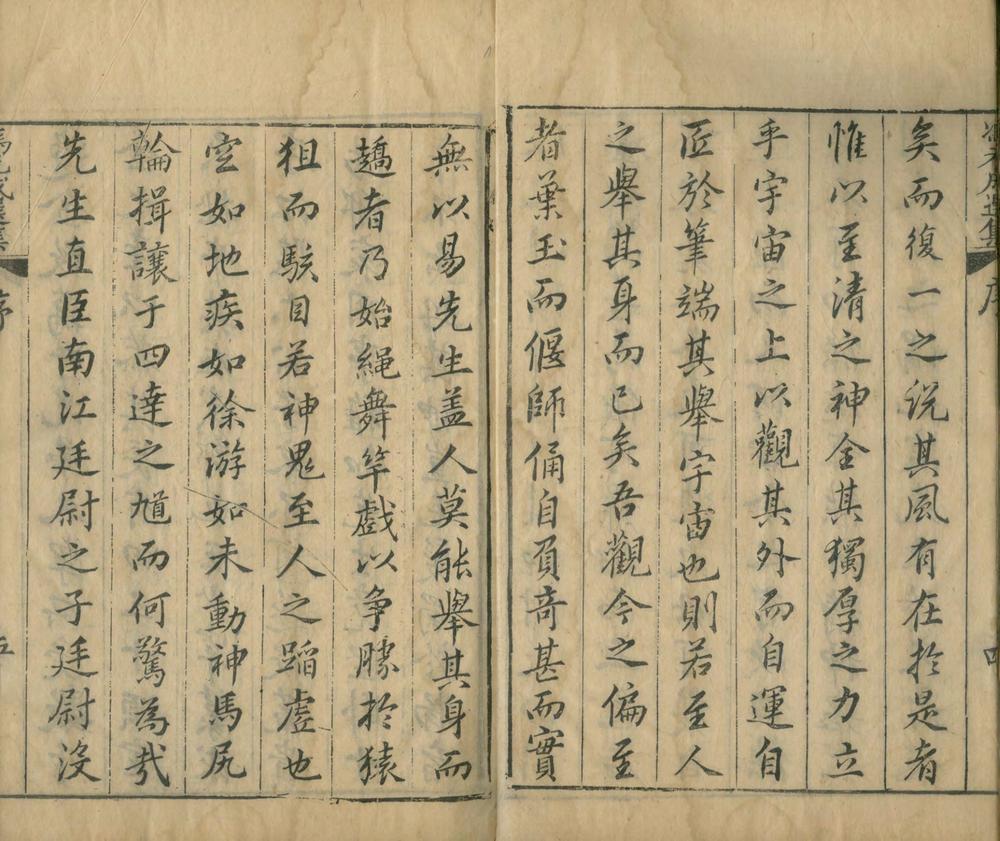 矣而復一之说其風有在扵是者
惟以至清之神全其獨厚之力立
乎宇宙之上以觀其外而自運自
匠於筆端其舉宇宙也則若至人
之舉其身而已矣吾觀今之偏至
者葉玉而偃師俑自負奇甚而實
無以易先生盖人莫能舉其身而
趫者乃始繩舞竿戲以争勝扵猿
狙而駭目若神鬼至人之蹈虛也
空如地疾如徐游如未動神馬尻
輪揖讓于四達之馗而何驚為㢤
先生直臣南江廷尉之子廷尉没
序
五